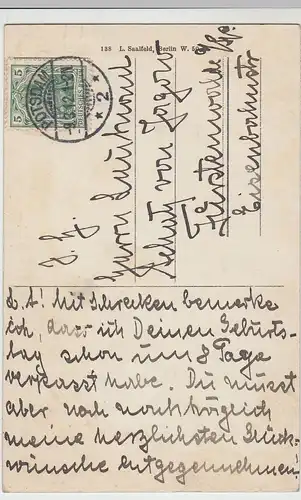 138 L. Saalfeld, Berlin W. 50
5 5
POTSDAM
* 2 *
Herrn Leutnant
Schutz von
Fürstenwalde
Eisenbahnstr
L. A! Mit Schrecken bemerke
ich, dass ich Deinen Geburts-
tag schon um 8 Tage
verpasst habe. Du musst
aber noch nachträglich
meine herzlichsten Glück-
wünsche entgegennehmen!